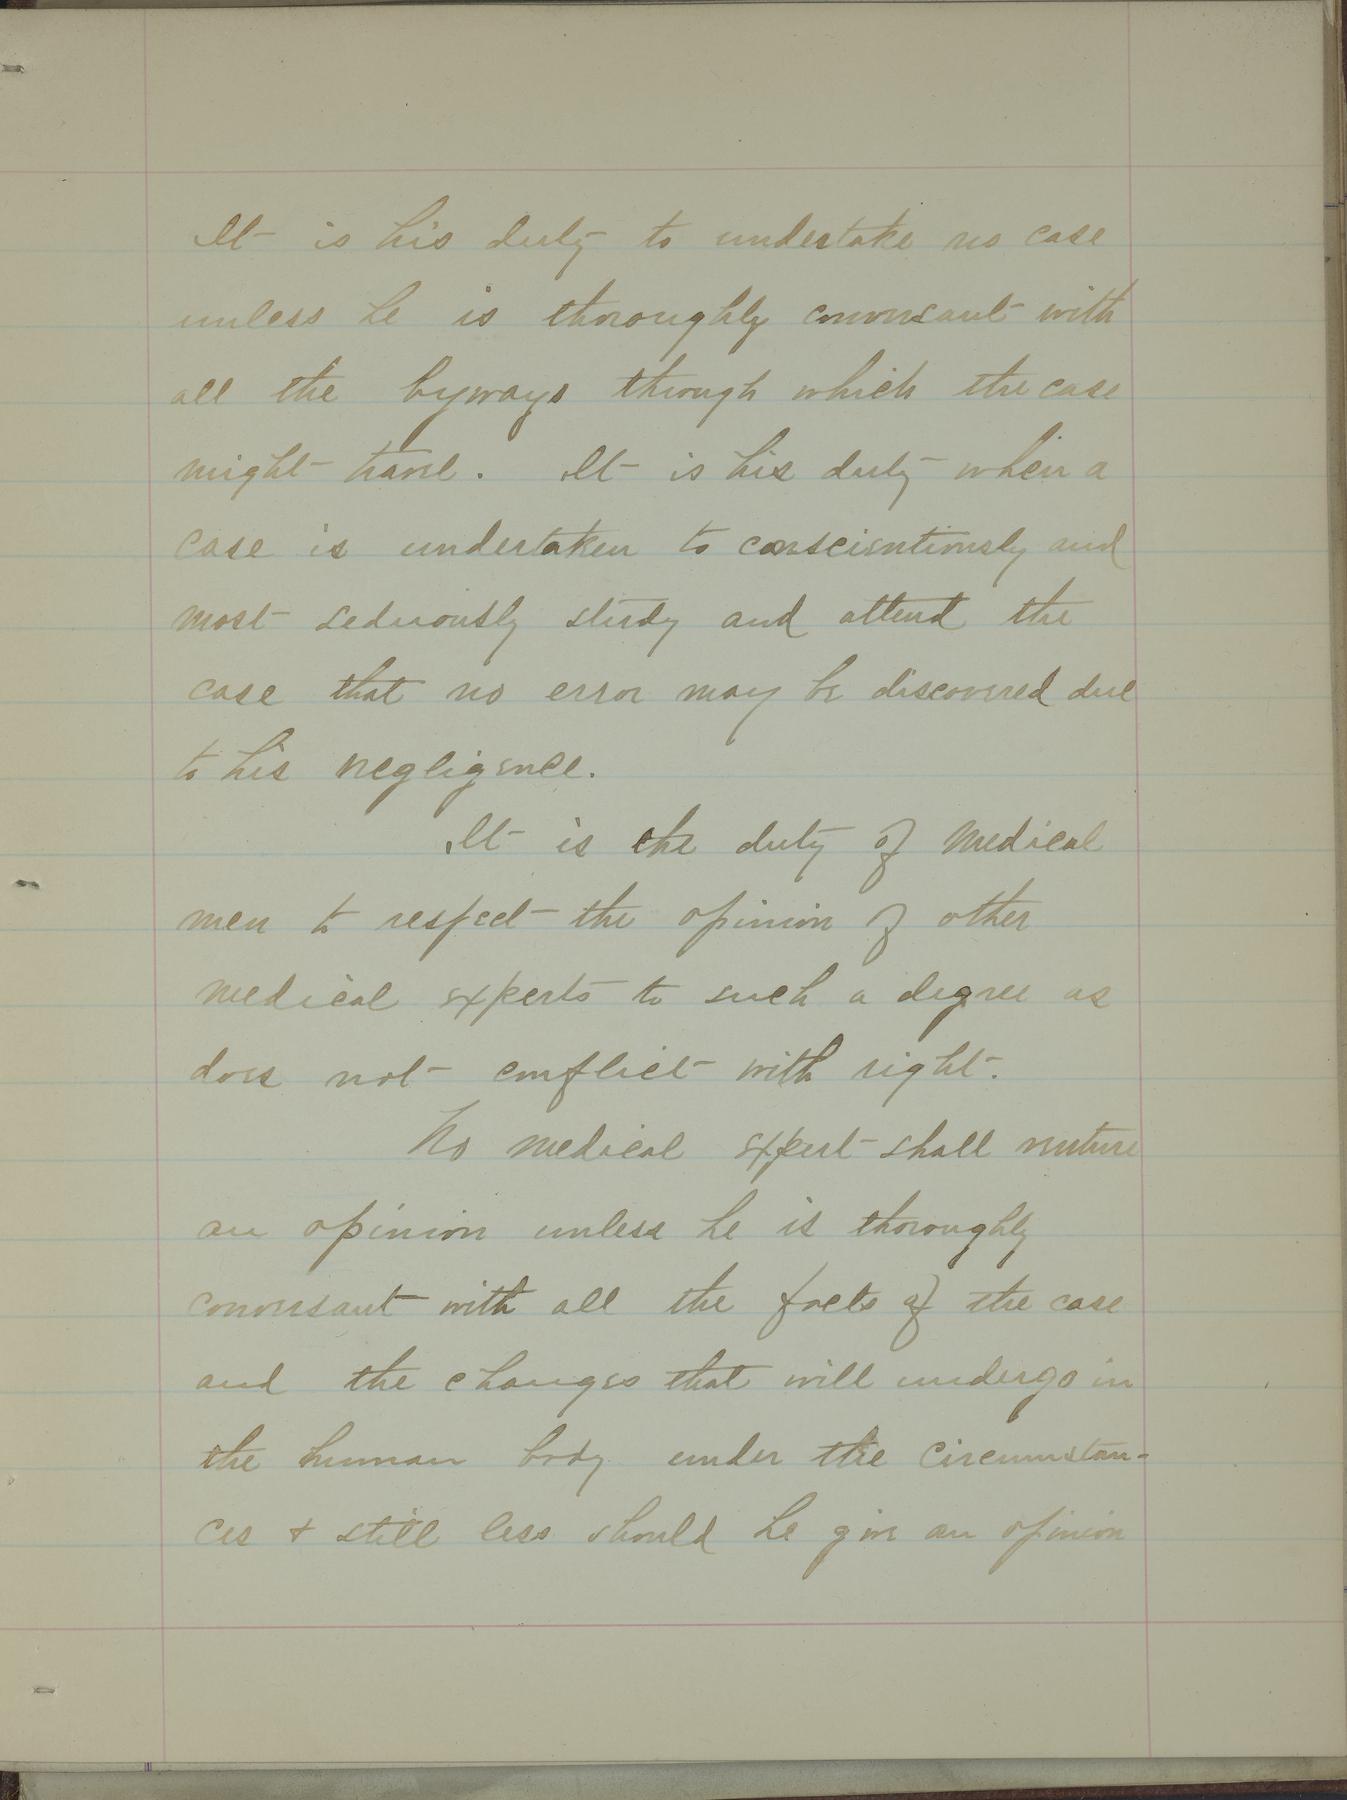 It is his duty to undertake no case
unless he is thoroughly conversant with
all the byways through which the case
might travel. It is his duty when a
case is undertaken to conscientiously and
most seduously study and attend the
case that no error may be discovered due
to his negligence.
It is the duty of medical
men to respect the opinion of other
medical experts to such a degree as
does not conflict with right.
No medical expert shall
an opinion unless he is thoroughly
conversant with all the facts of the case
and the changes that will undergo in
the human body under the circumstan-
ces & still less should he give an opinion